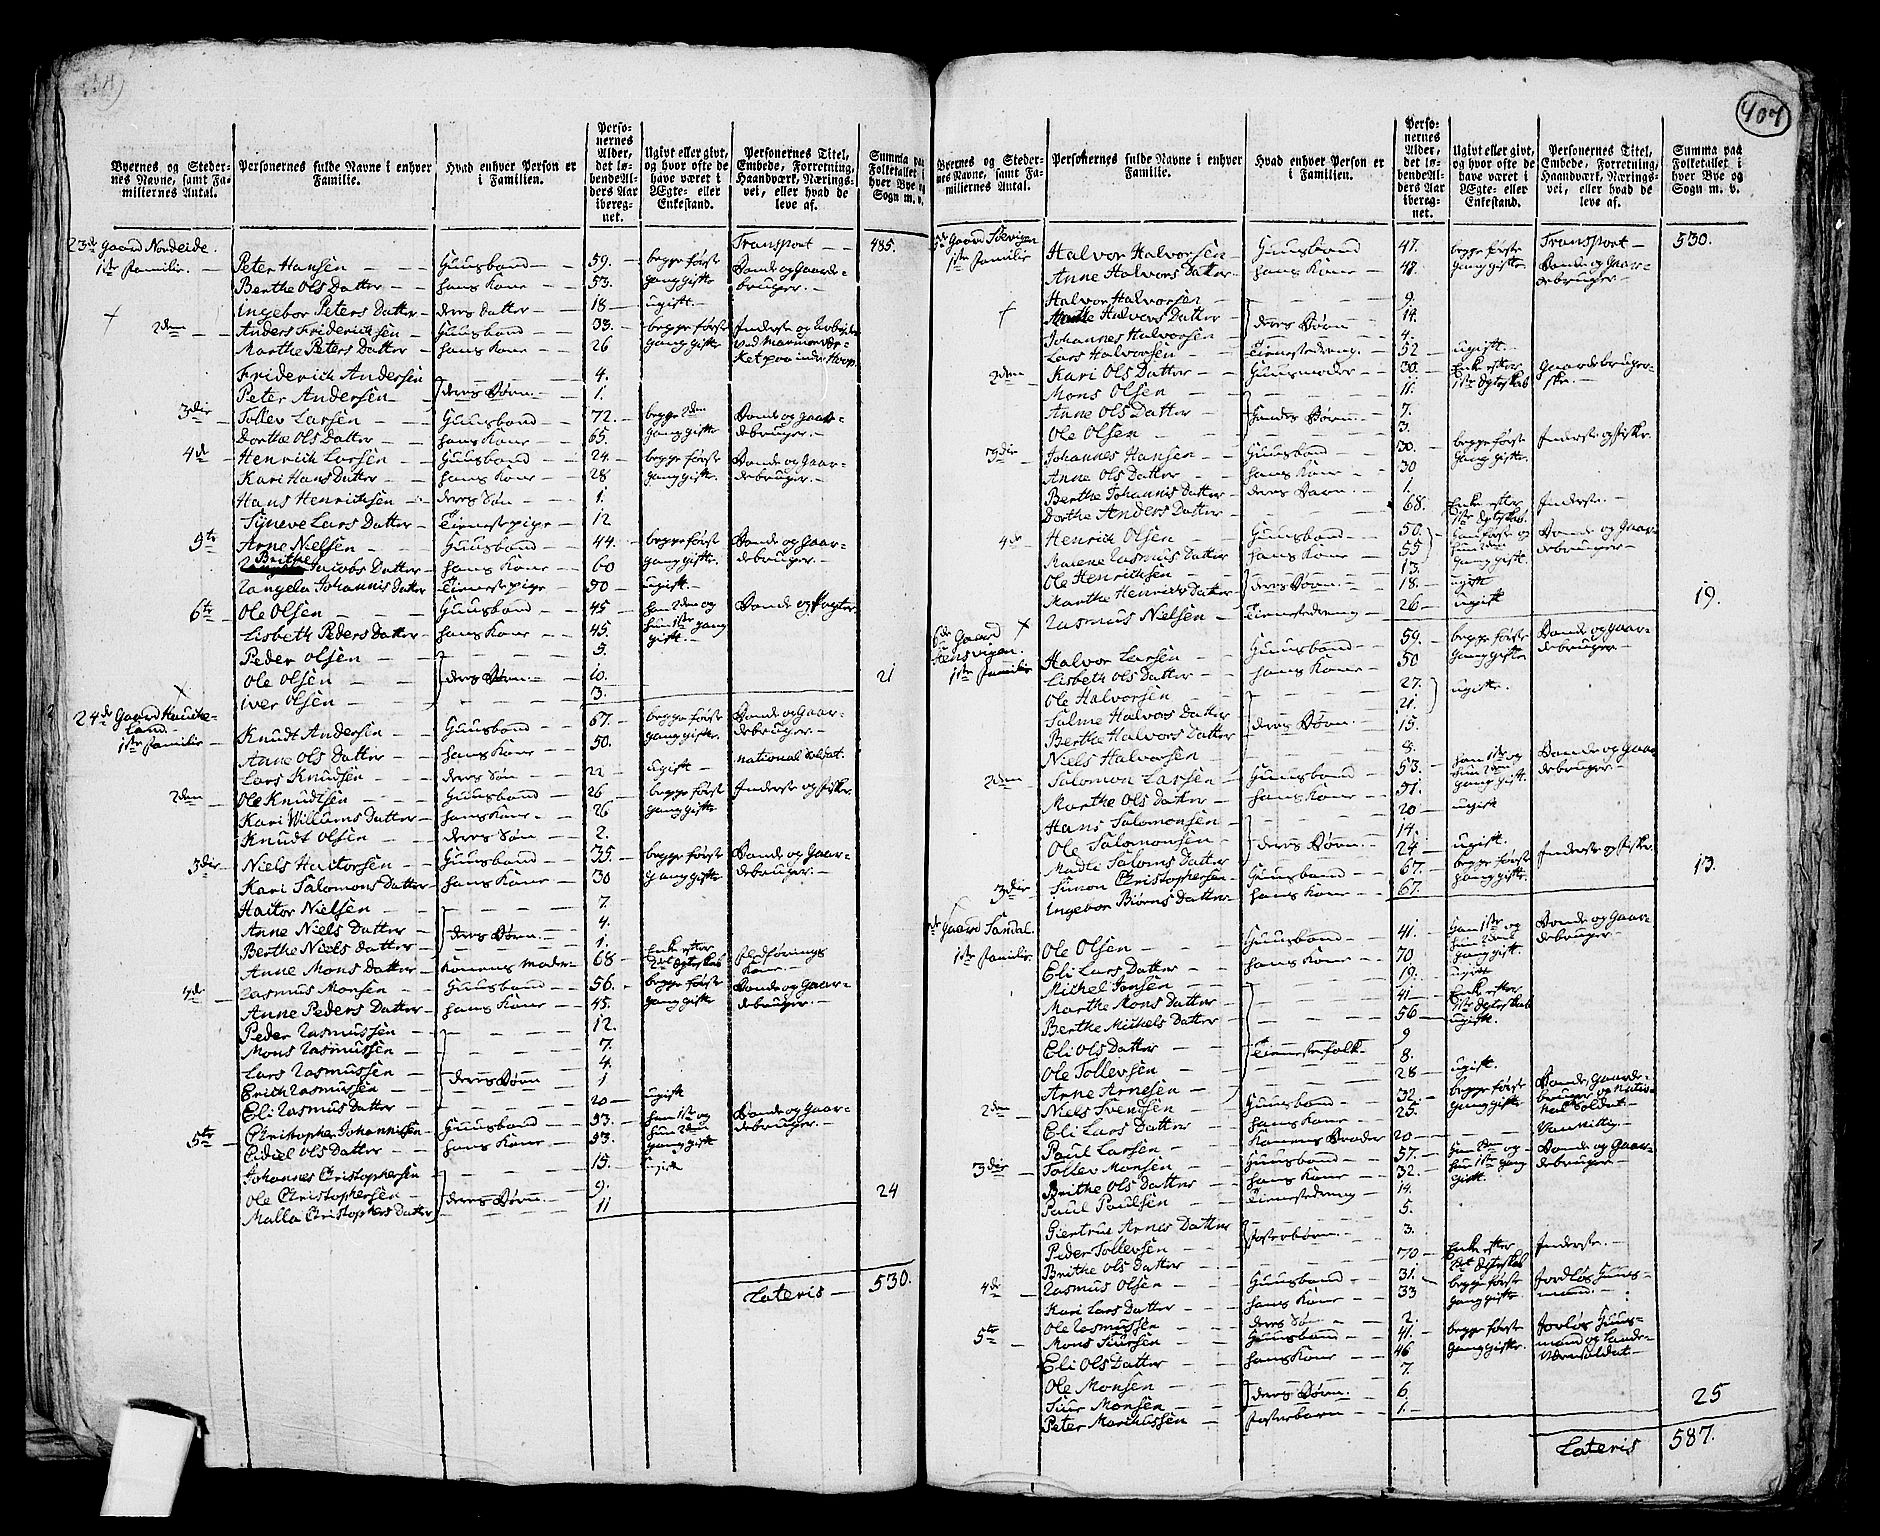 404
Byernes og Steder-
nes Navne, samt Fa-
miliernes Antal.
Personernes fulde Navne i enhver
Familie.
Hvad enhver Person er
i Familien.
Perso-
nernes
Alder,
det lø-
bende Al-
ders Aar
iberegnet.
Ugivt eller givt,
og hvor ofte de
have været i
Ægte- eller
Enkestand.
Personernes Titel,
Embede, Forretning,
Haandværk, Nærings-
vei, eller hvad de
leve af.
Summa paa
Folketallet i
hver Bye og
Sogn m. v.
23de Gaard Nordeide. Transport — 485.
1ste Familie. — Peter Hansen — Huusbond — 59. — begge første Bonde og Gaarde-
Berthe Ols Datter — hans Kone — 53. gang gifte bruger. —
Ingebor Peters Datter — deres Datter — 18 — ugift. —
2den — Anders Friderichsen — Huusbond — 33. — begge første Inderste og Arbeider
Marthe Peters Datter — hans Kone — 26 gang gifte ved Marmor Br-
Friderich Andersen 4.
Peter Andersen — deres Børn — 1.
3die — Tollev Larsen — Huusbond — 72. — begge 2den Bonde og Gaar-
Dorthe Ols Datter — hans Kone — 65. gang gifte debruger. —
4de — Henrich Larsen — Huusbond — 24. — begge første Bonde og Gaar-
Kari Hans Datter — hans Kone — 28 gang gifte. debruger. —
Hans Henrichsen — deres Søn — 1.
Syneve Lars Datter — Tienestepige — 12
5te — Arne Nielsen — Huusbond — 44. — begge første Bonde og Gaar-
Brithe Jacobs Datter — hans Kone — 60 gang gifte. debruger. —
Rangela Johannis Datter Tienestepige — 50 — ugift. —
6te — Ole Olsen — Huusbond — 45 — han 2den og Bonde og
Lisbeth Peders Datter — hans Kone — 45. hun 1ste gang
Peder Olsen — 5. gift. —
Ole Olsen — deres Børn. — 10. 21
Iver Olsen — 3.
24de Gaard
1ste Familie — Knudt Andersen — Huusbond — 67. — begge første Bonde og Gaar-
Anne Ols Datter — hans Kone — 50. gang gifte. debruger. —
Lars Knudsen — deres Søn — 22 — ugift — national Soldat.
2den — Ole Knudtsen — Huusbond — 26 — begge første Inderste og Fisker
Kari Willums Datter — hans Kone — 26 gang gifte
Knudt Olsen — deres Søn — 2.
3die — Niels Haitorsen — Huusbond — 35. — begge første Bonde og Gaar-
Kari Salomons Datter — hans Kone — 30 gang gifte debruger. —
Haitor Nielsen — 7.
Anne Niels Datter — deres Børn. 4.
Berthe Niels Datter — 1.
Anne Mons Datter — Konens Moder — 68 — Enke efter Fledførings
2det Egteskab Kone —
4de — Rasmus Monsen — Huusbond — 56. — begge første Bonde og Gaar-
Anne Peders Datter — hans Kone — 45. gang gifte debruger. —
Peder Rasmussen — 12.
Mons Rasmussen — 7.
Lars Rasmussen — 4.
Erich Rasmussen — deres Børn 1
Eli Rasmus Datter — 20 — ugift
5te — Christopher Johannissen — Huusbond — 53. — han 1ste og Bonde og Gaar-
Ols Datter — hans Kone — 53. hun 2den debruger. —
gang gift
Johannes Christophersen — 15. — ugift
Ole Christophersen — deres Børn — 9. 24
Malla Christophers Datter 11
Lateris — 530.
407
Byernes og Steder-
nes Navne, samt Fa-
miliernes Antal.
Personernes fulde Navne i enhver
Familie.
Hvad enhver Person er
i Familien.
Perso-
nernes
Alder,
det lø-
bende Al-
ders Aar
iberegnet.
Ugivt eller givt,
og hvor ofte de
have været i
Ægte- eller
Enkestand.
Personernes Titel,
Embede, Forretning,
Haandværk, Nærings-
vei, eller hvad de
leve af.
Summa paa
Folketallet i
hver Bye og
Sogn m. v.
5te Gaard Transport — 530.
1ste Familie Halvor Halvorsen — Huusbond — 47. — begge første Bonde og Gaar-
Anne Halvors Datter — hans Kone — 47. gang gifte debruger. —
Halvor Halvorsen — 9.
Marthe Halvors Datter — deres Børn 14.
Johannes Halvorsen 4.
Lars Halvorsen — Tienestedreng. — 52 — ugift. —
2den Kari Ols Datter — Huusmoder — 30. — Enke efter Gaardebruger-
Mons Olsen — 11. 1ste Egteskab ske. —
Anne Ols Datter — hendes Børn — 7.
Ole Olsen — 3.
3die Johannes Hansen — Huusbond — 30. — begge første Inderste og Fisker.
Anne Ols Datter — hans Kone — 30 gang gifte.
Berthe Johannis Datter — deres Barn. — 1.
Dorthe Anders Datter — 68. Enke efter Inderste. —
1ste Egteskab.
4de — Henrich Olsen — Huusbond — 50. han første og Bonde og Gaar-
Malene Rasmus Datter — hans Kone — 55 hun 2den debruger. —
Ole Henrichsen — 13. gang gift.
Marthe Henrichs Datter — deres Børn. — 18. — ugift
Rasmus Nielsen — Tienestedreng — 26 — ugift 19.
6te Gaard
Hensvigen.
1ste Familie Halvor Larsen — Huusbond — 59. — begge første Bonde og Gaar-
Lisbeth Ols Datter — hans Kone — 50 gang gifte debruger. —
Ole Halvorsen — 27. ugift.
Salme Halvors Datter — 21.
Berthe Halvors Datter — deres Børn. — 15.
Niels Halvorsen — 8.
2den — Salomon Larsen — Huusbond — 53. — han 1ste og Bonde og Gaar-
Marthe Ols Datter — hans Kone — 51. hun 2den debruger. —
gang gift.
Hans Salomonsen — 20 — ugift
Ole Salomonsen — 14.
Madli Saloms Datter — deres Børn. — 24 — ugift.
3die — Simon Christophersen — Huusbond — 67. — begge første Inderste og Fisker. 13.
Ingebor Biørns Datter — hans Kone — 67. gang gifte.
Gaard Sandal.
1ste Familie. Ole Olsen — Huusbond — 41. — han 1ste og Bonde og Gaar-
Eli Lars Datter — hans Kone — 70 hun 2den debruger. —
gang gift.
Michel Jonsen — 19. — ugift
Marthe Mons Datter — 41 — Enke efter
1ste Egteskab
Berthe Michels Datter — 56 — ugift.
Eli Ols Datter — Tienestefolk — 9
Ole Tollevsen — 8.
Anne Arnesen — 28 — ugift.
2den — Niels Svendsen — Huusbond — 32. — begge første Bonde, Gaarde-
Eli Lars Datter — hans Kone — 25. gang gifte bruger og Natio-
nal Soldat —
Paul Larsen — Konens Broder 20 — Vanvittig. —
3die — Tollev Monsen — Huusbond — 57. — han 2den og Bonde og Gaar-
Brithe Ols Datter — hans Kone — 32. hun 1ste gang debruger. —
Paul Paulsen — Tienestedreng — 14. gift.
Giertrue Arnes Datter 5.
Peder Tollevsen — Fosterbørn. — 3.
Brithe Ols Datter — 70 — Enke efter Inderste. —
1ste Egteskab
4de — Rasmus Olsen — Huusbond — 31. — begge første Jordløs Huus-
Kari Lars Datter — hans Kone — 33 gang gifte mand. —
Ole Rasmussen — deres Søn — 2.
5te — Mons Siursen — Huusbond — 41. — begge første Jorløs Huus-
Eli Ols Datter — hans Kone — 46 gang gifte. mand og Lande-
Værnsoldat. —
Ole Monsen — 7.
Siur Monsen — deres Børn. — 6. 25
Peter Marcussen — Fosterbarn. — 1. —
Lateris 587.